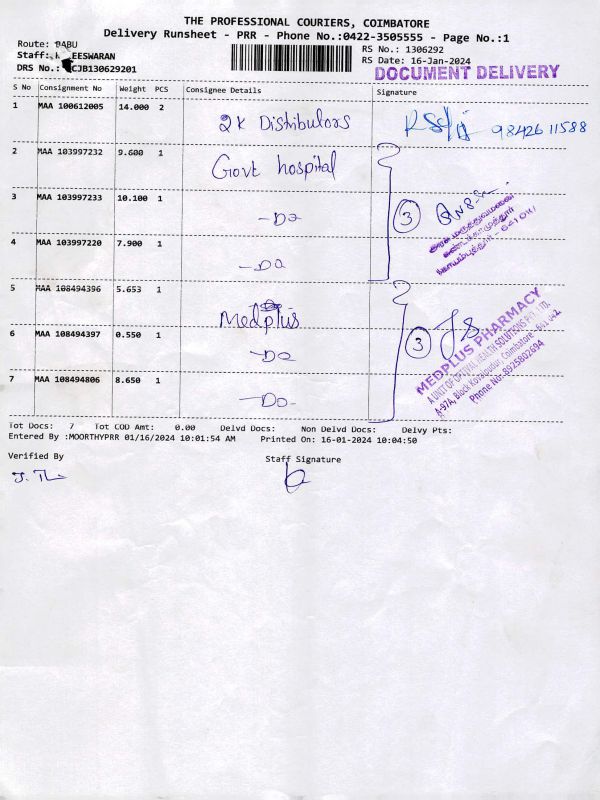 THE PROFESSIONAL COURIERS, COIMBATORE
Delivery Runsheet - PRR - Phone No.:0422-3505555 - Page No.:1
Route: BABU
RS No.: 1306292
Staff: EESWARAN
RS Date: 16-Jan-2024
DRS No.: CJB130629201
DOCUMENT DELIVERY
S No Consignment No Weight PCS Consignee Details Signature
1 MAA 100612005 14.000 2 2K Distributors 9842611588
2 MAA 103997232 9.600 1 Govt hospital
3 MAA 103997233 10.100 1 -Do 3
4 MAA 103997220 7.900 1 -Do
5 MAA 108494396 5.653 1 Medplus
6 MAA 108494397 0.550 1 -Do 3
7 MAA 108494806 8.650 1 -Do-
MEDPLUS PHARMACY
A UNIT OF OPTIVAL HEALTH SOLUTIONS PVT. LTD.
Phone No: 8925802694
Tot Docs: 7 Tot COD Amt: 0.00 Delvd Docs: Non Delvd Docs: Delvy Pts:
Entered By :MOORTHYPRR 01/16/2024 10:01:54 AM Printed On: 16-01-2024 10:04:50
Verified By Staff Signature